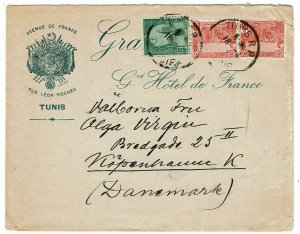 AVENUE DE FRANCE
RUE LÉON ROCHES
TUNIS
Gra
Gd Hôtel de France
Välborna Fru
Olga Virgin
Bredgade 25 II
Köpenhamn K
(Danemark)